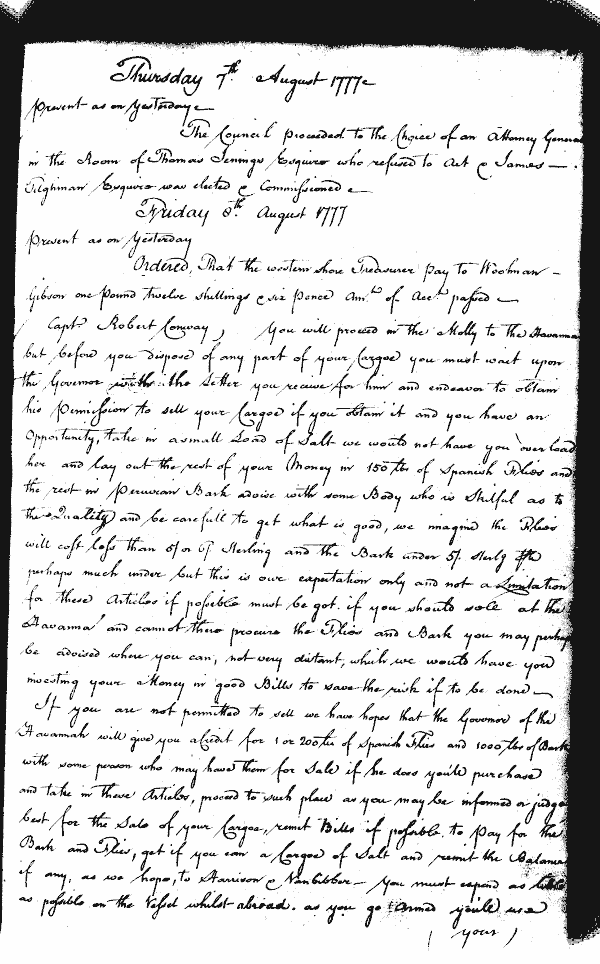 Thursday 7th August 1777
Present as on Yesterday
The Council proceeded to the Choice of an Attorney General
in the Room of Thomas Jenings Esquire who refused to Act & James
Tilghman Esquire was elected & Commissioned
Friday 8th August 1777
Present as on Yesterday
Ordered, That the western shore Treasurer pay to Woolman
Gibson one Pound twelve shillings & six Pence Amt of Acct passed
Capt Robert Conway, You will proceed in the Molly to the Havanna
but before you dispose of any part of your Cargoe you must wait upon
the Governor with the Letter you receive for him and endeavor to obtain
his Permission to sell your Cargoe if you obtain it and you have an
Opportunity, take in a small Load of Salt we would not have you over load
her and lay out the rest of your Money in 150 lbs of Spanish Flies and
the rest in Peruvian Bark advise with some Body who is Skilful as to
the Quality and be carefull to get what is good, we imagine the Flies
will cost less than 5/ or 6/ Sterling and the Bark under 5/. sterlg
perhaps much under but this is our expectation only and not a Limitation
for these Articles if possible must be got. if you should sell at the
Havanna and cannot there procure the Flies and Bark you may perhaps
be advised where you can, not very distant, which we would have you
investing your Money in good Bills to save the risk if to be done
If you are not permitted to sell we have hopes that the Governor of the
Havannah will give you a Credit for 1 or 200 lbs of Spanish Flies and 1000 lbs of Bark
with some person who may have them for Sale if he does you'll purchase
and take in these Articles, proceed to such place as you may be informed or judge
best for the Sale of your Cargoe, remit Bills if possible to pay for the
Bark and Flies, get if you can a Cargoe of Salt and remit the Balance
if any, as we hope, to Harrison & VanBibber - You must expend as little
as possible on the Vessel whilst abroad. as you go armed you'll use
( your )